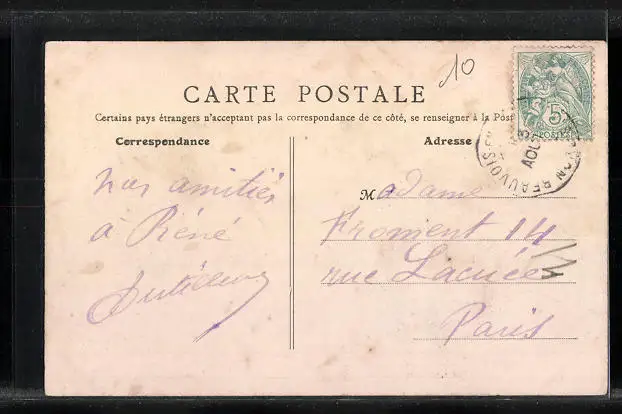 10
CARTE POSTALE
Certains pays étrangers n'acceptant pas la correspondance de ce côté, se renseigner à la Post
Correspondance
Adresse
nos amitiés
à Réné
Madame
Froment 14
rue Lacuée
Paris
5
POSTES
BEAUVOIS-EN
AOU